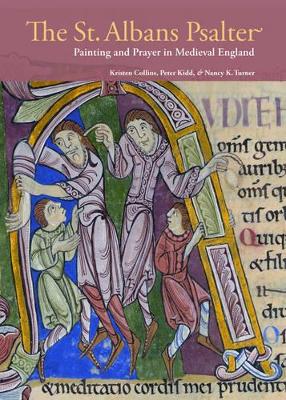 The St. Albans Psalter
Painting and Prayer in Medieval England
Kristen Collins, Peter Kidd, & Nancy K. Turner
UDITE H
om̄s gen
aurib
om̄s qu
tis orb
Quiq
& filii
& meditatio cordis mei prudenti